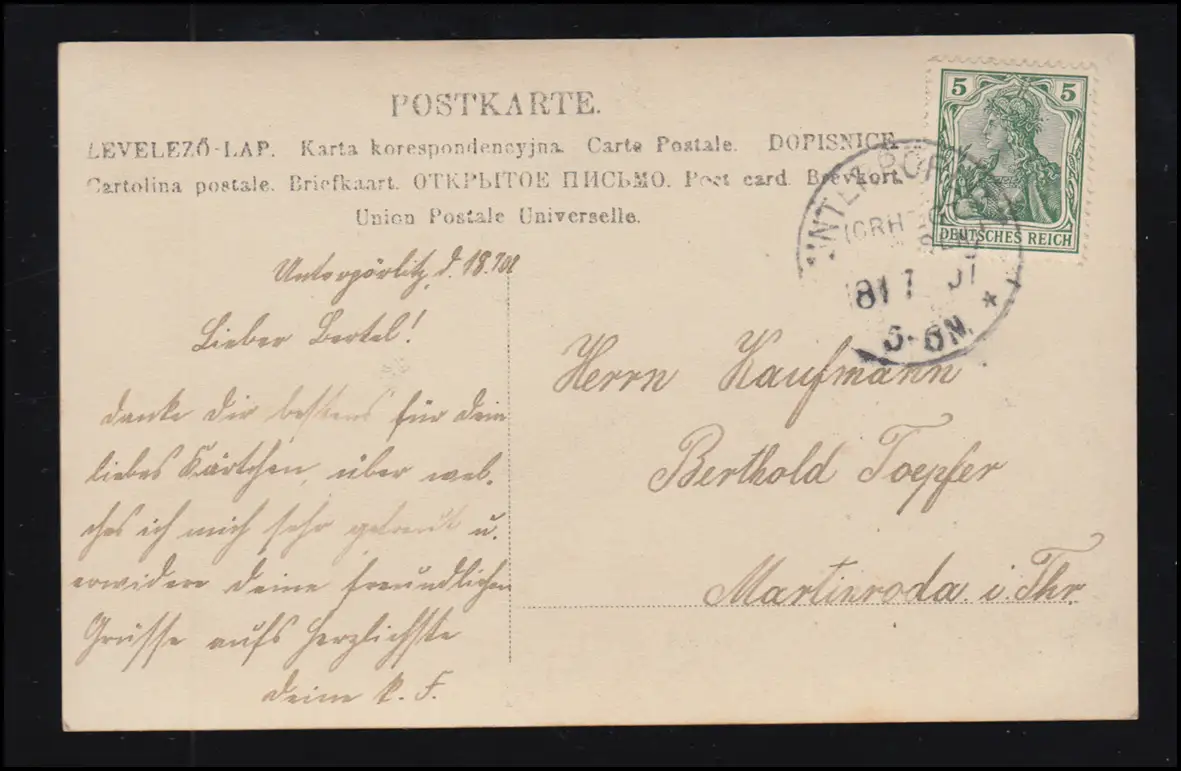 POSTKARTE.
LEVELEZŐ-LAP. Karta korespondencyjna. Carte Postale. DOPISNICE
Cartolina postale. Briefkaart. ОТКРЫТОЕ ПИСЬМО. Post card. Brevkort.
Union Postale Universelle.
5 5
DEUTSCHES REICH
5-6N.
Untergörlitz, d. 18.
Lieber Bertel!
danke dir bestens für dein
liebes Kärtchen, über wel-
ches ich mich sehr gefreut u.
erwidere deine freundlichen
Grüsse aufs herzlichste
deine K. F.
Herrn Kaufmann
Berthold Toepfer
Martinroda i. Thr.